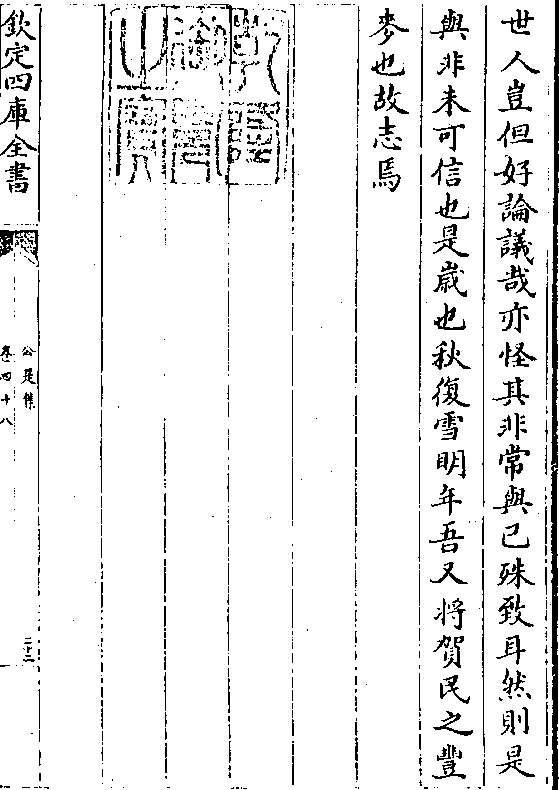 世人豈但好論議哉亦怪其非常與已殊致耳然則是
與非未可信也是嵗也秋復雪明年吾又將賀民之豐
麥也故志焉
乾隆御覽之寶
欽定四庫全書
公是集
卷四十八
二十二